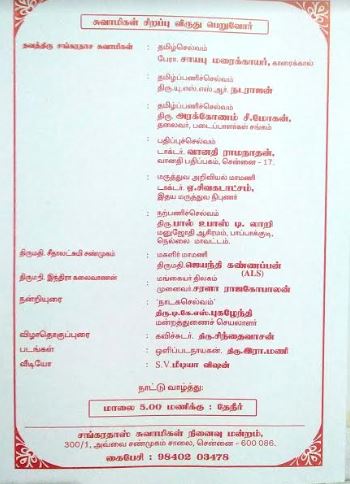 சுவாமிகள் சிறப்பு விருது பெறுவோர்
தவத்திரு சங்கரதாச சுவாமிகள் : தமிழ்செல்வம்
பேரா. சாயபு மரைக்காயர், காரைக்கால்
: தமிழ்ப்பணிச்செல்வம்
திரு.யு.எஸ்.எஸ்.ஆர். நடராஜன்
: தமிழ்ப்பணிச்செல்வம்
திரு. அரக்கோணம் சீ.யோகன்,
தலைவர், படைப்பாளர்கள் சங்கம்
: பதிப்புச்செல்வம்
டாக்டர். வானதி ராமநாதன்,
வானதி பதிப்பகம், சென்னை - 17.
: மருத்துவ அறிவியல் மாமணி
டாக்டர். ஏ.சிவகடாட்சம்,
இதய மருத்துவ நிபுணர்
: நற்பணிச்செல்வம்
திரு.பால் உபாஸ் டி. லாறி
மனுஜோதி ஆசிரமம், பாப்பாக்குடி,
நெல்லை மாவட்டம்.
திருமதி. சீதாலட்சுமி சண்முகம் : மகளிர் மாமணி
திருமதி.ஜெயந்தி கண்ணப்பன்
(ALS)
திருமதி. இந்திரா கலைவாணன் : மங்கையர் திலகம்
முனைவர்.சரளா ராஜகோபாலன்
நன்றியுரை : 'நாடகச்செல்வம்'
திரு.டி.கே.எஸ்.புகழேந்தி
மன்றத்துணைச் செயலாளர்
விழாதொகுப்புரை : கவிச்சுடர். திரு.சிந்தைவாசன்
படங்கள் : ஒளிப்பட நாயகன். திரு.இரா.மணி
வீடியோ : S.V.மீடியா விஷன்
நாட்டு வாழ்த்து:
மாலை 5.00 மணிக்கு : தேநீர்
சங்கரதாஸ் சுவாமிகள் நினைவு மன்றம்,
300/1, அவ்வை சண்முகம் சாலை, சென்னை - 600 086.
கைபேசி : 98402 03478